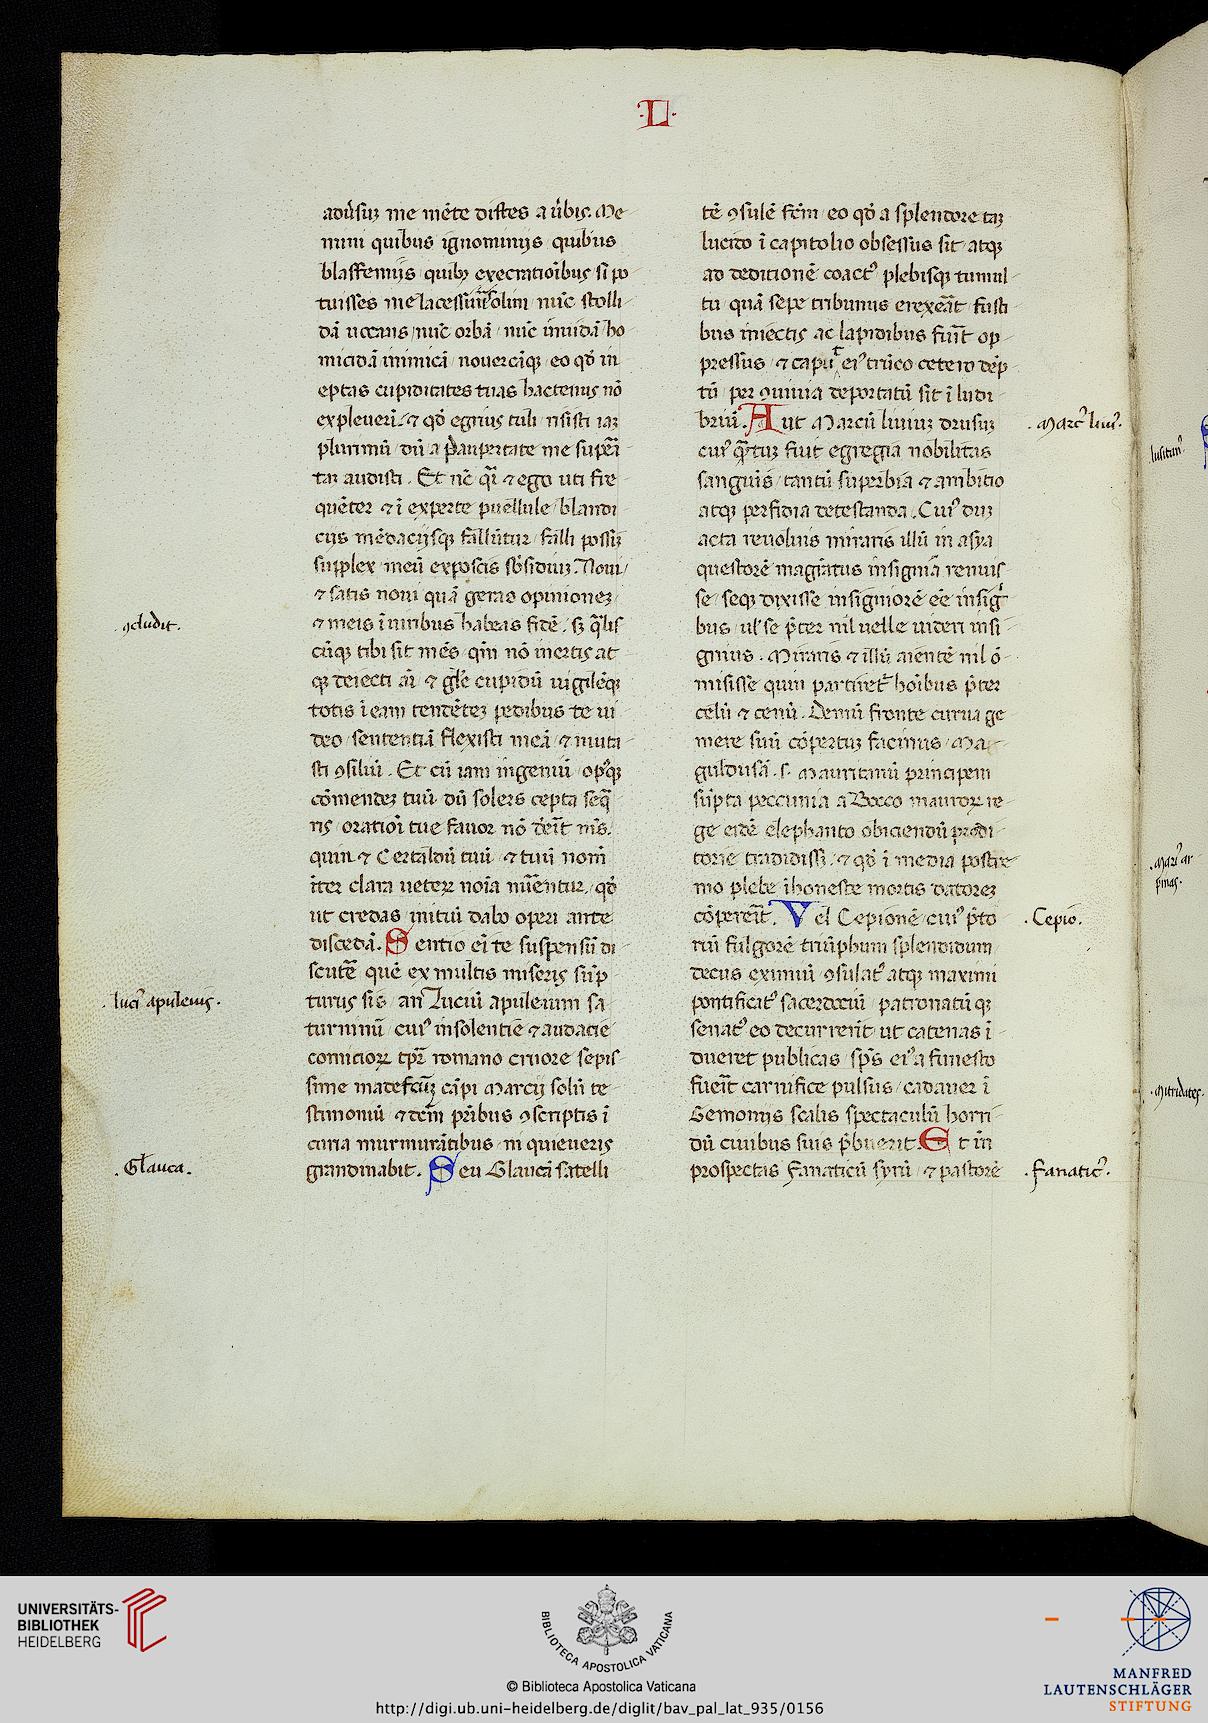 ·L·
adūsuȝ me mēte distes a ūbis. Me
mini quibus ignominijs quibus
blasfemijs quibȝ execratioibus si po
tuisses me lacessiuist olim nūc stolli
dā uocans nūc orbā nūc inuidā ho
micidā inimicā nouercāqȝ eo qđ in
eptas cupiditates tuas hactenus nō
expleuerī. ⁊ qđ egrius tuli nsisti iaȝ
plurimū dū a paupertate me supeā
tā audisti. Et nē qȝi ⁊ ego uti fre
quēter ⁊ ī experte puellule blandi
cijs mēdacijsqȝ fallūtur falli possiȝ
supplex meū exposcis sb̄sidiuȝ. Noui
⁊ satis noui quā geras opinioneȝ
⁊ meis ī uiribus habeas fidē. sȝ q̄lis
cūqȝ tibi sit mēs qm̄ nō inertis at
qȝ deiecti ai ⁊ gl̄e cupidū uigilēqȝ
totis ī eam tendēteȝ pedibus te ui
deo sententiā flexisti meā ⁊ muta
sti ꝯsiliū. Et cū iam ingeniū opꝰqȝ
cōmendeȝ tuū dū solers cepta seq̄
ris oratioī tue fauor nō deīt mꝰs.
quin ⁊ Certaldū tuū ⁊ tuū nom̄
īter clara ueteꝝ noīa nūentur qđ
ut credas initiū dabo operi ante
discedā. Sentio eī te suspensū di
scutē quē ex multis miseris sūp
turus sis an Luciū apuleium sa
turninū cuiꝰ insolentie ⁊ audacie
comicioꝝ tp̄r romano cruore sepis
sime madefcūȝ cāpi Marcij solū te
stimoniū ⁊ dem̄ pr̄ibus ꝯscriptis ī
curia murmurātibus ni quieueris
grandinabit. Seu Glaucā satelli
tē ꝯsulē fcm̄ eo qđ a splendore taȝ
lucido ī capitolio obsessus sit atqȝ
ad deditionē coactꝰ plebisqȝ tumul
tu quā sepe tribunus erexeāt fusti
bus iniectis ac lapidibus fuit op
pressus ⁊ caput eiꝰ trūco cetero dēp
tū per ꝯuiuia deportatū sit ī ludi
briū. Aut Marcū liuiuȝ drusuȝ
cuiꝰ q̄tuȝ fuit egregia nobilitas
sanguīs tantū superbia ⁊ ambitio
atqȝ perfidia detestanda. Cuiꝰ duȝ
acta reuoluis miraris illū in asya
questorē magr̄atus insignia renuis
se seqȝ dixisse insigniorē eē insigī
bus ul̄ se p̄ter nil uelle uideri insi
gnius. Miraris ⁊ illū aientē nil o
misisse quin partiret̄ hoībus p̄ter
celū ⁊ cenū. Demū fronte curua ge
mere suū cōpertuȝ facinus Ma
guldusā .s. mauritanū principem
sūpta peccunia a Bocco mauroꝝ re
ge eidē elephanto obiciendū prodi
torie tradidissȝ ⁊ qđ ī media postre
mo plebe īhoneste mortis datoreȝ
cōpereīt. Vel Cepionē cuiꝰ p̄to
riū fulgorē triūphum splendidum
decus eximiū ꝯsulatꝰ atqȝ maximi
pontificatꝰ sacerdociū patronatūqȝ
senatꝰ eo decurrerīt ut catenas ī
dueret publicas sp̄s eiꝰ a funesto
fueīt carnifice pulsus cadauer ī
Gemonijs scalis spectaculū horri
dū ciuibus suis p̄buerit. Et īn
prospectas Fanaticū syrū ⁊ pastorē
ꝯcludit.
. luciꝰ apuleius.
. Glauca.
. Marcꝰ liuiꝰ.
. Cepio.
. fanaticꝰ.
lusitanꝰ
. Mariꝰ ar
pinas.
. Mitridates.
UNIVERSITÄTS-
BIBLIOTHEK
HEIDELBERG
BIBLIOTECA APOSTOLICA VATICANA
© Biblioteca Apostolica Vaticana
http://digi.ub.uni-heidelberg.de/diglit/bav_pal_lat_935/0156
MANFRED
LAUTENSCHLÄGER
STIFTUNG